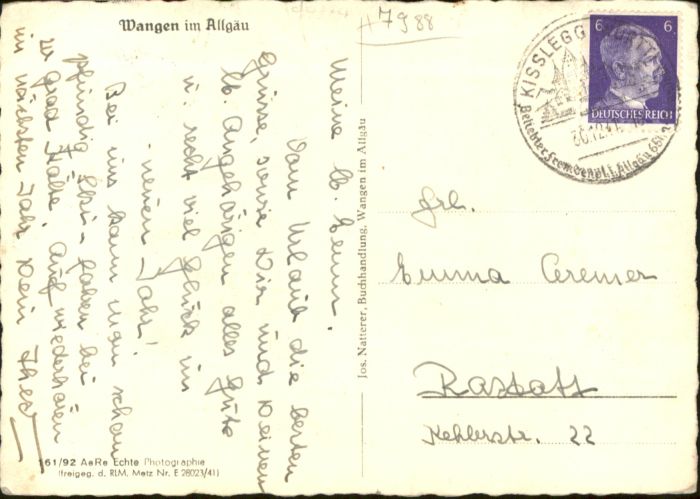 Wangen im Allgäu
#7988
KISSLEGG
6 6
DEUTSCHES REICH
30.12.41
Meine lb. Emm.
Vom Urlaub die besten
Grüsse, sowie Dir und Deinen
lb. Angehörigen alles Gute
u. recht viel Glück im
neuen Jahr!
Bei uns kann man schon
pfundig Ski-fahren bei
20 grad Kälte. Auf wiederhören
im nächsten Jahr Dein Theo
Jos. Natterer, Buchhandlung, Wangen im Allgäu
Frl.
Emma Cremer
Rastatt
Kehlerstr. 22
161/92 AeRe Echte Photographie
(freigeg. d. RLM. Metz Nr. E 28023/41)